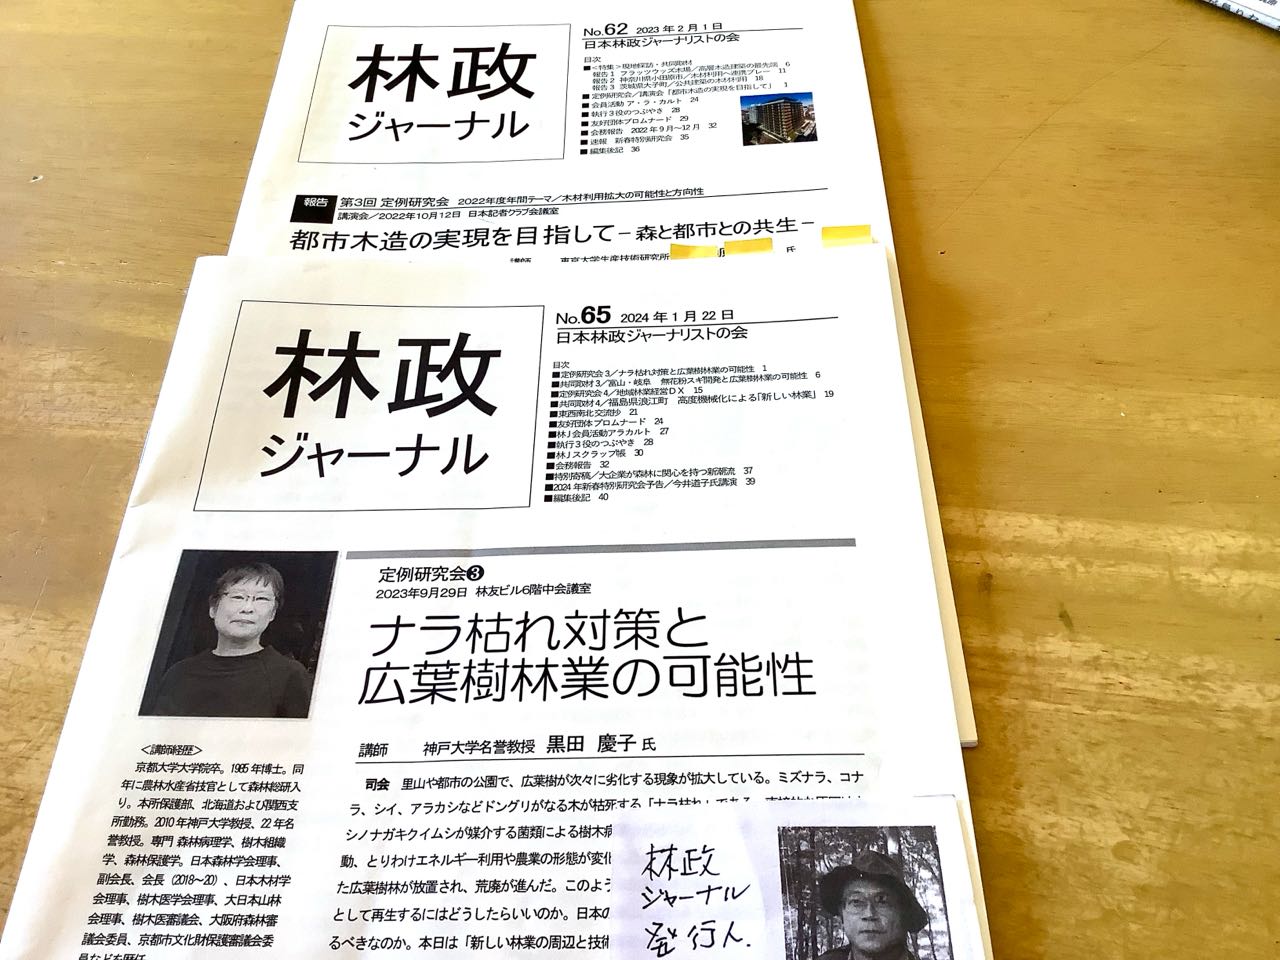 林政
ジャーナル
No.62 2023年2月1日
日本林政ジャーナリストの会
目次
■<特集>現地探訪・共同取材
報告1 フラッツウッズ木場／高層木造建築の最先端 6
報告2 神奈川県小田原市／木材利用へ連携プレー 11
報告3 茨城県大子町／公共建築の木材利用 18
■定例研究会／講演会「都市木造の実現を目指して」 1
■会員活動 ア・ラ・カルト 24
■執行3役のつぶやき 28
■友好団体プロムナード 29
■会務報告 2022年9月〜12月 32
■速報 新春特別研究会 35
■編集後記 36
報告 第3回 定例研究会 2022年度年間テーマ／木材利用拡大の可能性と方向性
講演会／2022年10月12日 日本記者クラブ会議室
都市木造の実現を目指して－森と都市との共生－
講師 東京大学生産技術研究所 氏
林政
ジャーナル
No.65 2024年1月22日
日本林政ジャーナリストの会
目次
■定例研究会3／ナラ枯れ対策と広葉樹林業の可能性 1
■共同取材3／富山・岐阜 無花粉スギ開発と広葉樹林業の可能性 6
■定例研究会4／地域林業経営DX 15
■共同取材4／福島県浪江町 高度機械化による「新しい林業」 19
■東西南北交流抄 21
■友好団体プロムナード 24
■林J会員活動アラカルト 27
■執行3役のつぶやき 28
■林Jスクラップ帳 30
■会務報告 32
■特別寄稿／大企業が森林に関心を持つ新潮流 37
■2024年新春特別研究会予告／今井道子氏講演 39
■編集後記 40
定例研究会❸
2023年9月29日 林友ビル6階中会議室
ナラ枯れ対策と
広葉樹林業の可能性
講師 神戸大学名誉教授 黒田 慶子 氏
<講師経歴>
京都大学大学院卒。1985年博士。同
年に農林水産省技官として森林総研入
り。本所保護部、北海道および関西支
所勤務。2010年神戸大学教授、22年名
誉教授。専門 森林病理学、樹木組織
学、森林保護学。日本森林学会理事、
副会長、会長（2018〜20）、日本木材学
会理事、樹木医学会理事、大日本山林
会理事、樹木医審議会、大阪府森林審
議会委員、京都市文化財保護審議会委
員などを歴任
司会 里山や都市の公園で、広葉樹が次々に劣化する現象が拡大している。ミズナラ、コナ
ラ、シイ、アラカシなどドングリがなる木が枯死する「ナラ枯れ」である。
シノナガキクイムシが媒介する菌類による樹木病
動、とりわけエネルギー利用や農業の形態が変化
た広葉樹林が放置され、荒廃が進んだ。このよう
として再生するにはどうしたらいいのか。日本の
るべきなのか。本日は「新しい林業の周辺と技術
林政
ジャーナル
発行人.